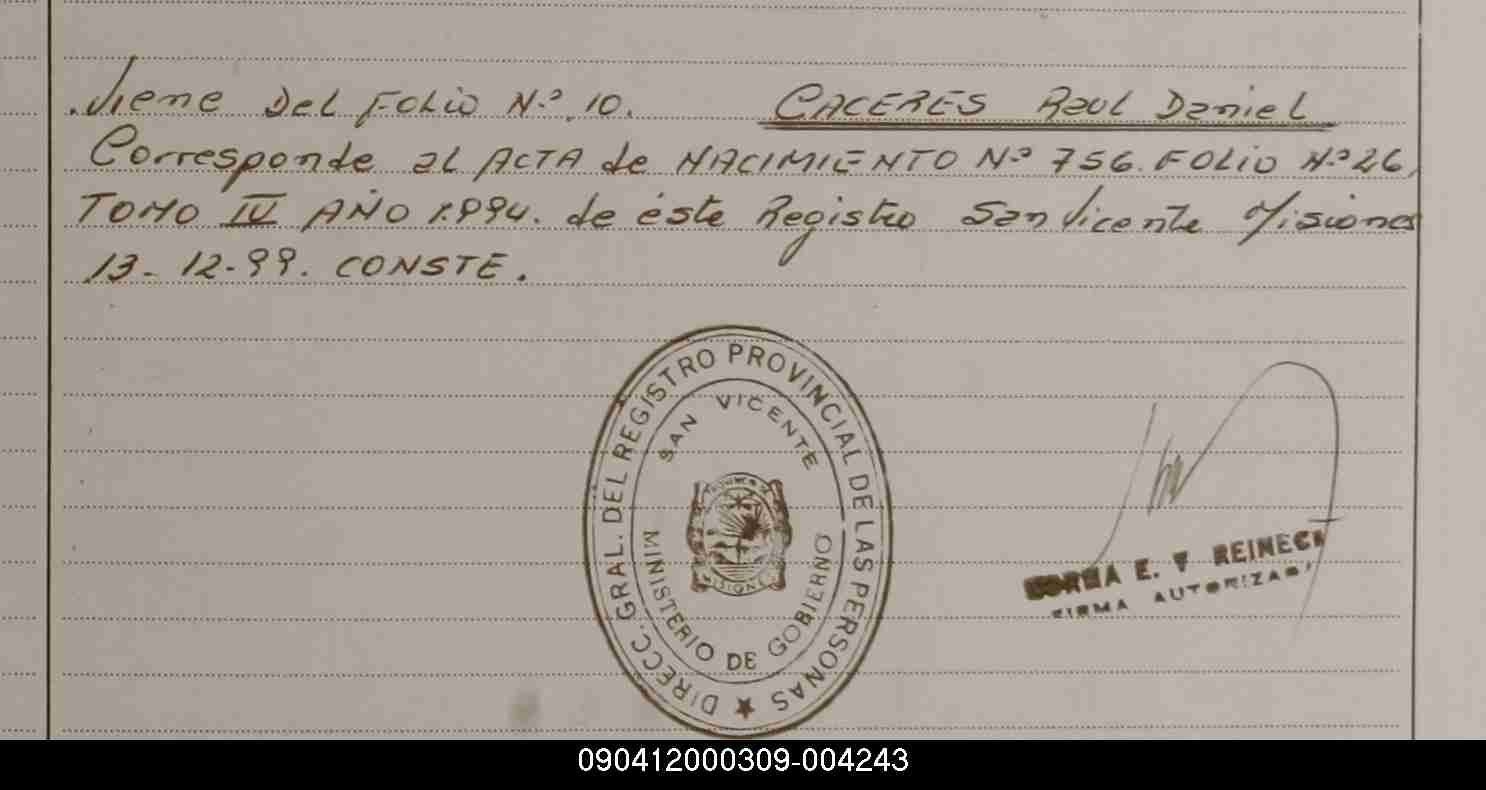 .Viene Del Folio N.º 10. CACERES Raul Daniel
Corresponde al ACTA de NACIMIENTO N.º 756. FOLIO N.º 26,
TOMO IV AÑO 1.994. de éste Registro San Vicente Misiones
13-12-99. CONSTE.
DIRECC. GRAL. DEL REGISTRO PROVINCIAL DE LAS PERSONAS
SAN VICENTE
MISIONES
MINISTERIO DE GOBIERNO
E. REINECK
FIRMA AUTORIZADA
090412000309-004243